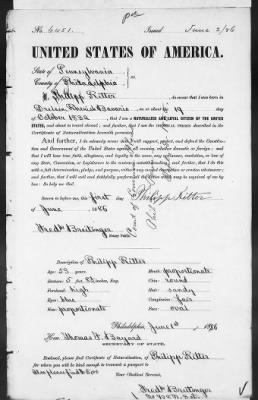 No. 6051. Issued June 2/86
UNITED STATES OF AMERICA.
State of Pennsylvania
County of Philadelphia } ss.
I, Philipp Ritter, do swear that I was born in
Bavaria on or about the 19 day of
October 1832, that I am a NATURALIZED AND LOYAL CITIZEN OF THE UNITED
STATES, and about to travel abroad; and further, that I am the IDENTICAL PERSON described in the
Certificate of Naturalization herewith presented.
And further, I do solemnly swear that I will support, protect, and defend the Constitu-
tion and Government of the United States against all enemies, whether domestic or foreign; and
that I will bear true faith, allegiance, and loyalty to the same, any ordinance, resolution, or law of
any State, Convention, or Legislature to the contrary notwithstanding; and further, that I do this
with a full determination, pledge, and purpose, without any mental reservation or evasion what-
soever; and further, that I will well and faithfully perform all the duties which may be required of
me by law: So help me God.
Philipp Ritter
Sworn to before me this first day
of June 1886
Fredk Breitinger
Notary Public.
Description of Philipp Ritter
Age: 53 years. Mouth: proportionate
Stature: 5 feet inches, Eng. Chin: round
Forehead: high Hair: sandy
Eyes: blue Complexion: fair
Nose: proportionate Face: oval
Philadelphia, June 1st 1886
Hon. Thomas F. Bayard
SECRETARY OF STATE.
Enclosed, please find Certificate of Naturalization, of Philipp Ritter
for whom you will be kind enough to transmit a passport to
Your Obedient Servant,
Fredk Breitinger